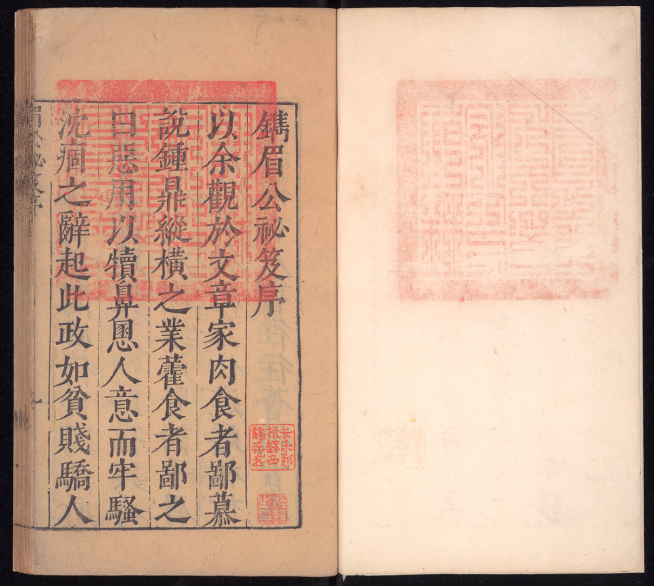 鐫眉公祕笈序
以余觀於文章家肉食者鄙慕
說鍾鼎縱橫之業藿食者鄙之
曰惡用以犢鼻慁人意而牢騷
沈痼之辭起此政如貧賤驕人